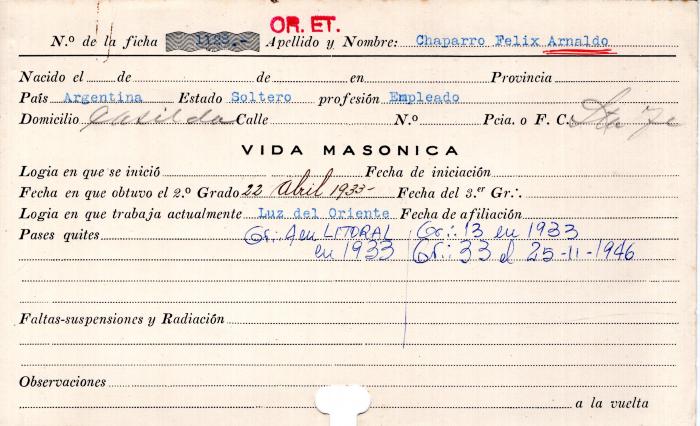 OR. ET.
N.º de la ficha 1128.- Apellido y Nombre: Chaparro Felix Arnaldo
Nacido el de de en Provincia
País Argentina Estado Soltero profesión Empleado
Domicilio Casilda Calle N.º Pcia. o F. C. Sta Fe
VIDA MASONICA
Logia en que se inició Fecha de iniciación
Fecha en que obtuvo el 2.º Grado 22 Abril 1933- Fecha del 3.er Gr∴
Logia en que trabaja actualmente Luz del Oriente Fecha de afiliación
Pases quites Gr∴ 4 en LITORAL Gr∴ 13 en 1933
en 1933 Gr∴ 33 el 25-11-1946
Faltas-suspensiones y Radiación
Observaciones
a la vuelta